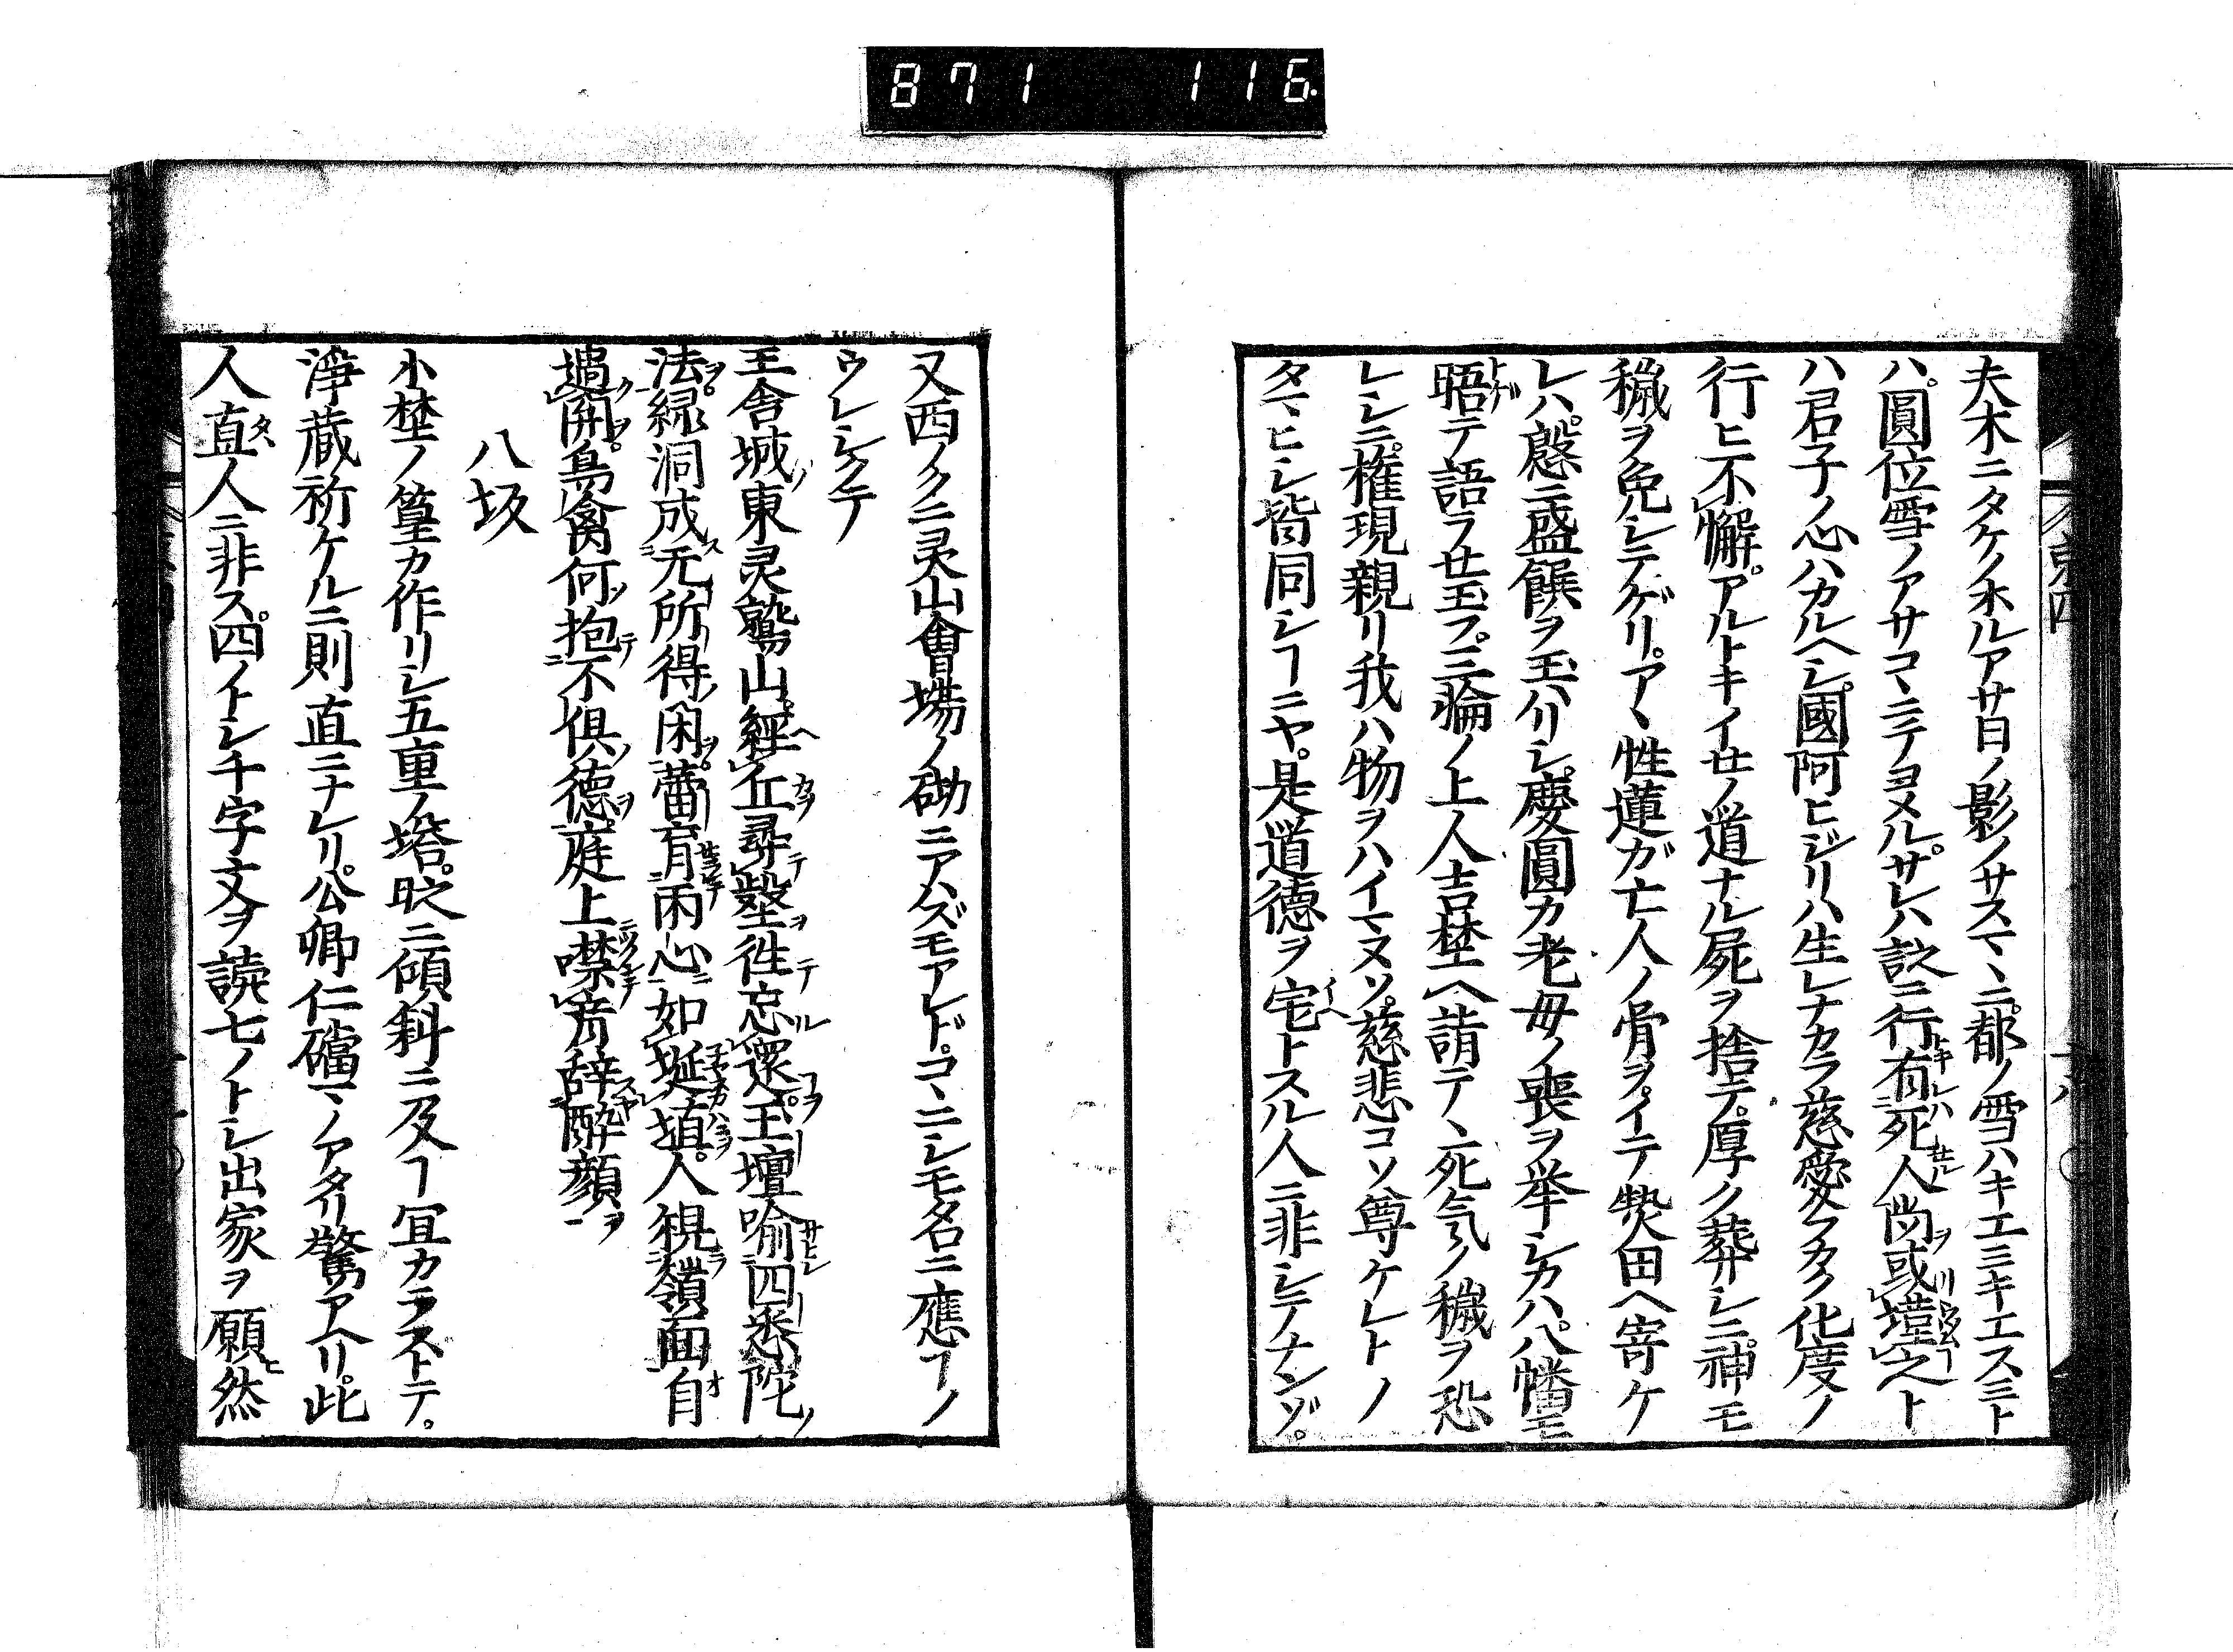 871 116
夫木ニタケノホルアサ日ノ影ノサスマヽニ。都ノ雪ハキエミキエスミト
ハ。圓位雪ノアサコヽニテヨメル。サレハ詩ニ行有死人尚或墐之ト
ハ君子ノ心ハカルヘシ。國阿ヒジリハ生レナカラ慈愛フカク化度ノ
行ヒ不懈。アルトキイセノ道ナル屍ヲ捨テ。厚ク葬リシニ。神モ
穢ヲ免シテゲリ。アヽ性蓮ガ亡人ノ骨ヲイテ熱田ヘ寄ケ
レハ。慇ニ盛饌ヲ玉ハリシ。慶圓カ老母ノ喪ヲ挙シカハ。八幡モ
晤テ語ラセ玉フ。三輪ノ上人吉埜ヘ詣テヽ死気ノ穢ヲ恐
レシニ。権現親リ我ハ物ヲハイマヌソ。慈悲コソ尊ケレトノ
タマヒシ皆同シヿニヤ。是道徳ヲ宅トスル人ニ非シテナンゾ。
又西ノクニ灵山會場ノ砌ニアハズモアレド。コヽニシモ名ニ應フノ
ウレシクテ
王舎城東灵鷲山經丘尋壑徃忘還王壇喩四悉陀
法緑洞成无所得閑蕾育雨心如埏埴人視嶺面自
過開鳥禽何抱不倶徳庭上噤音辞酔顔
八坂
小埜ノ篁カ作リシ五重ノ塔。乾ニ傾斜ニ及フ冝カラストテ。
淨蔵祈ケルニ則直ニナレリ。公卿仁礑マノアタリ驚アヘリ。此
人直人ニ非ス。四ノトシ千字文ヲ読七ノトシ出家ヲ願然